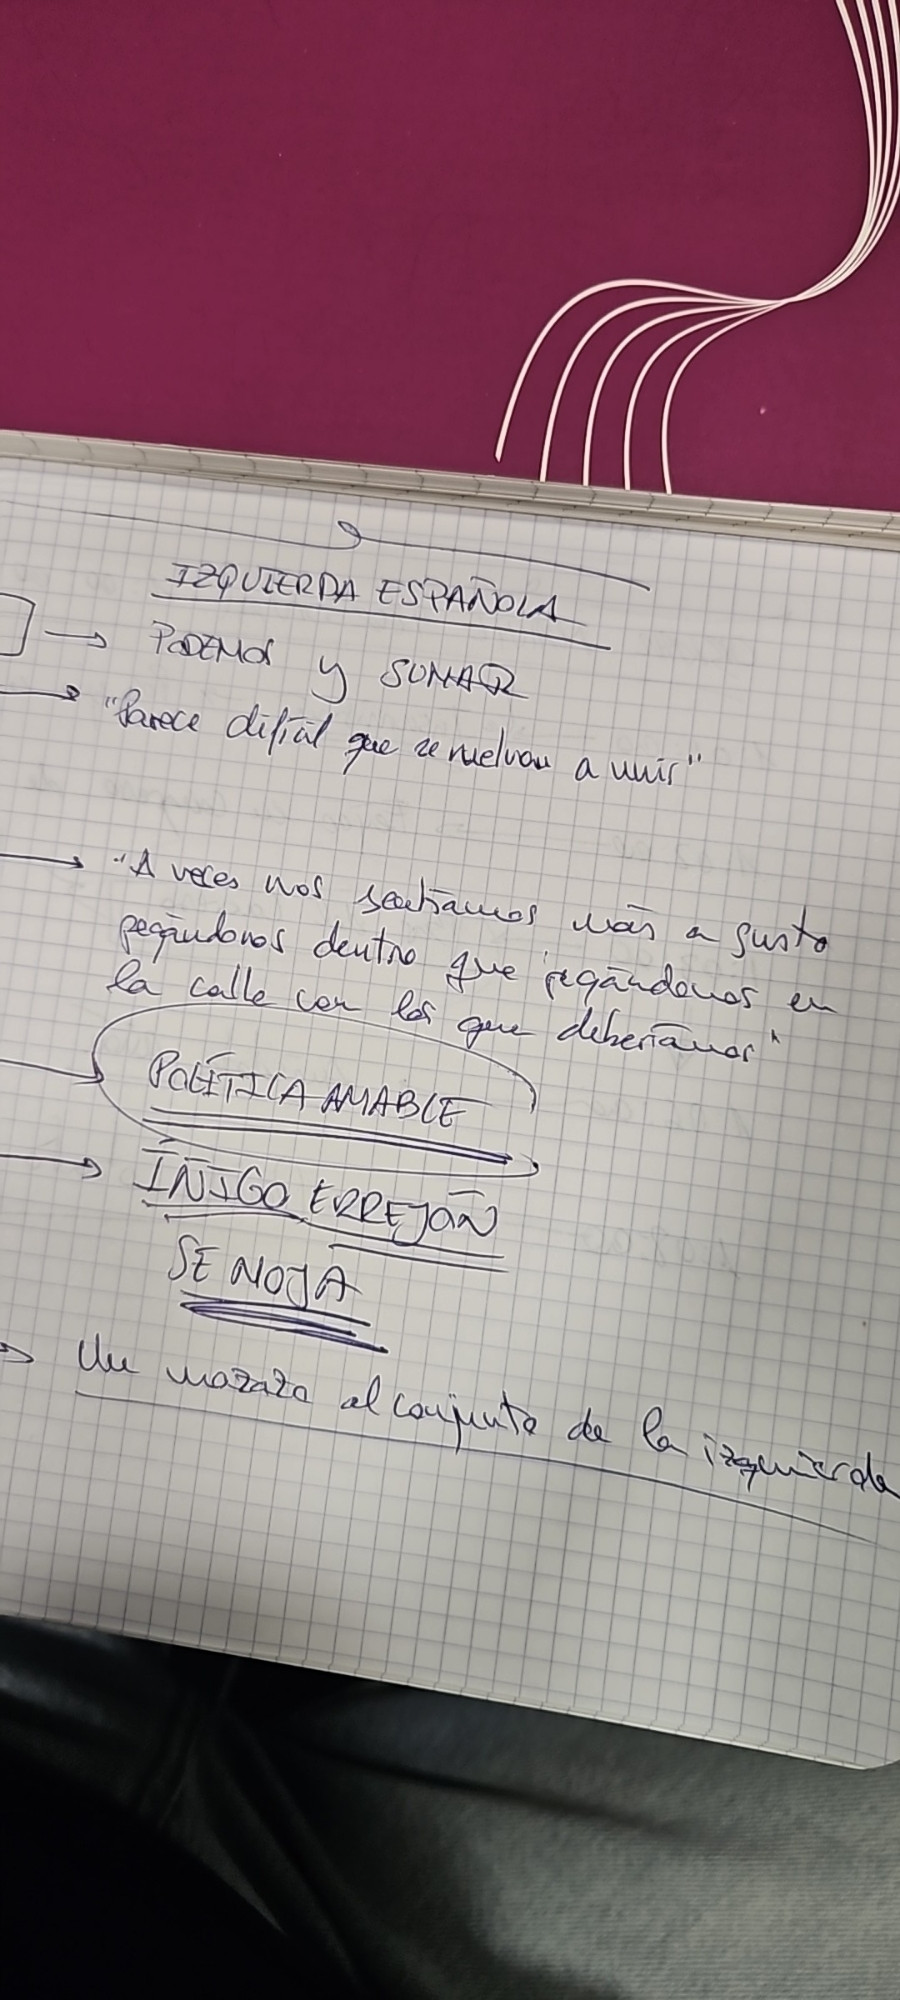 IZQUIERDA ESPAÑOLA
PODEMOS y SUMAR
"Parece difícil que se vuelvan a unir"
"A veces nos sentíamos más a gusto
pegándonos dentro que pegándonos en
la calle con los que deberíamos"
POLÍTICA AMABLE
ÍÑIGO ERREJÓN
SE MOJA
Un mazazo al conjunto de la izquierda